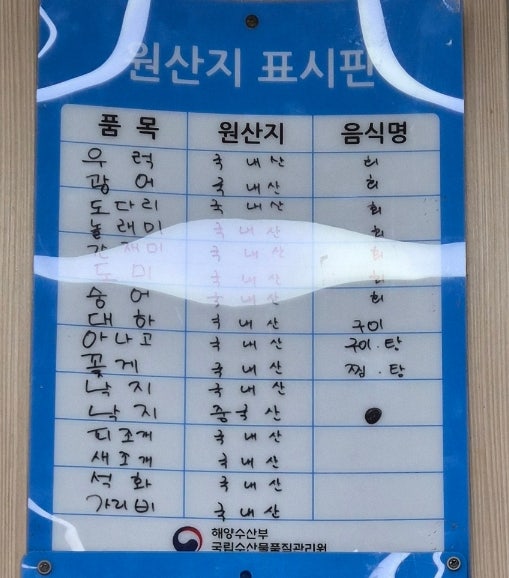 원산지 표시판
품 목 원산지 음식명
우 럭 국 내 산 회
광 어 국 내 산 회
도 다 리 국 내 산 회
놀 래 미 국 내 산 회
간 재 미 국 내 산 회
도 미 국 내 산 회
숭 어 국 내 산 회
대 하 국 내 산 구이
아 나 고 국 내 산 구이 · 탕
꽃 게 국 내 산 찜 · 탕
낙 지 국 내 산
낙 지 중 국 산 ●
피 조 개 국 내 산
새 조 개 국 내 산
석 화 국 내 산
가 리 비 국 내 산
해양수산부
국립수산물품질관리원